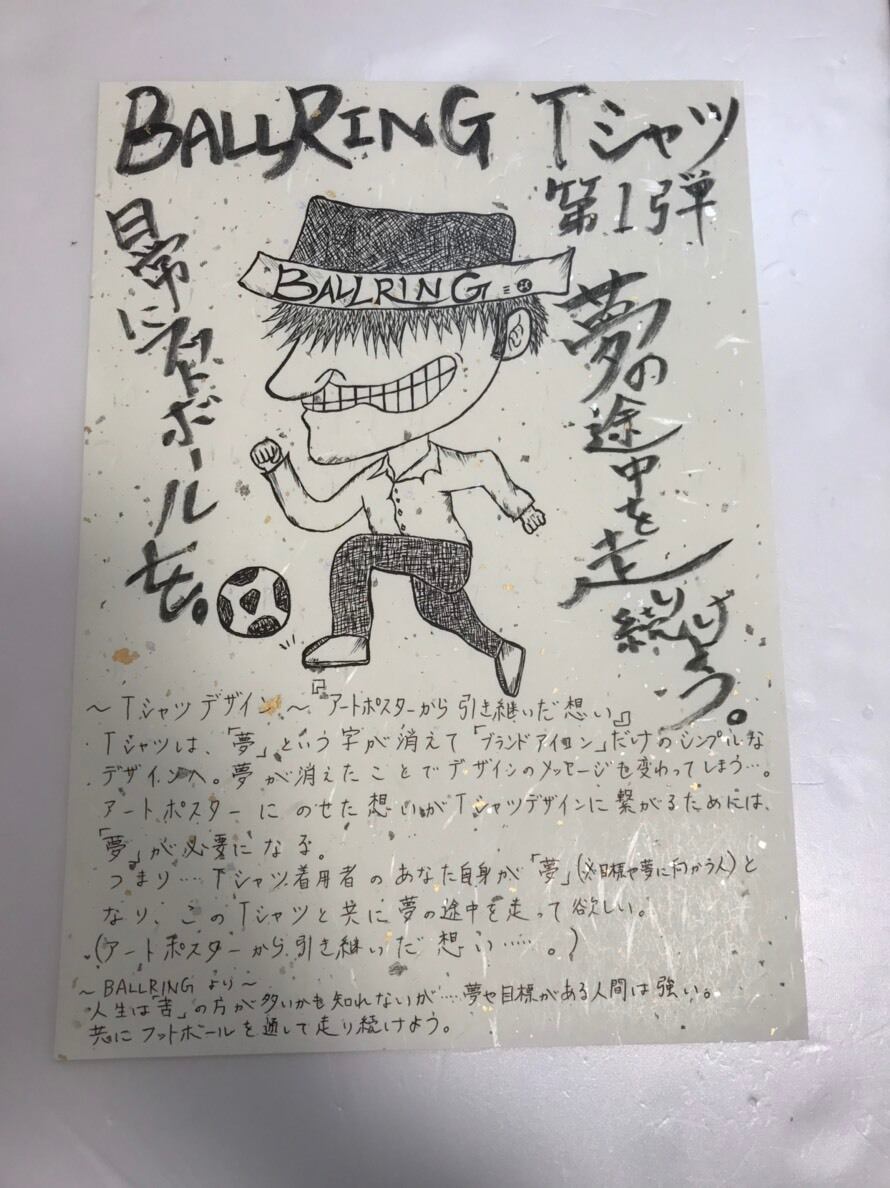 BALLRING Tシャツ
第1弾
日常にフットボールを。
BALLRING
夢の途中を走り続けよう。
～Tシャツデザイン～『アートポスターから引き継いだ想い』
Tシャツは、「夢」という字が消えて「ブランドアイコン」だけのシンプルな
デザインへ。夢が消えたことでデザインのメッセージも変わってしまう…。
アートポスターにのせた想いがTシャツデザインに繋がるためには、
「夢」が必要になる。
つまり…Tシャツ着用者のあなた自身が「夢」(※目標や夢に向かう人)と
なり、このTシャツと共に夢の途中を走って欲しい。
(アートポスターから引き継いだ想い……。)
～BALLRINGより～
人生は「苦」の方が多いかも知れないが…夢や目標がある人間は強い。
共にフットボールを通して走り続けよう。